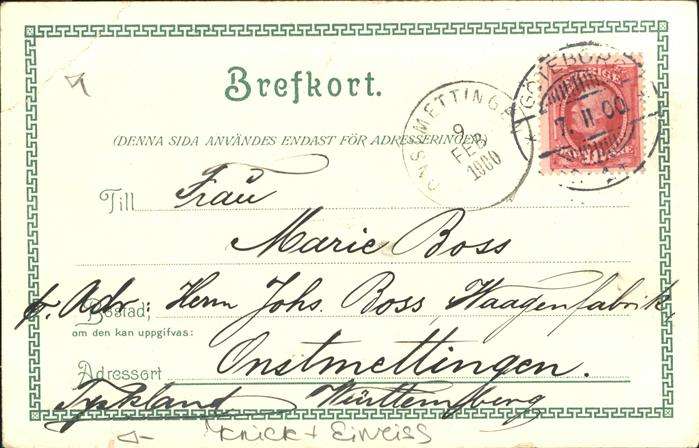 Brefkort.
GÖTEBORG
7. II 00
ONSTMETTINGEN
9
FEB
1900
(DENNA SIDA ANVÄNDES ENDAST FÖR ADRESSERINGEN)
Till Frau
Marie Boss
p. Adr. Herrn Johs. Boss, Waagenfabrik,
Bostad:
om den kan uppgifvas:
Adressort Onstmettingen.
Tyskland Württemberg
Knick + Einriss